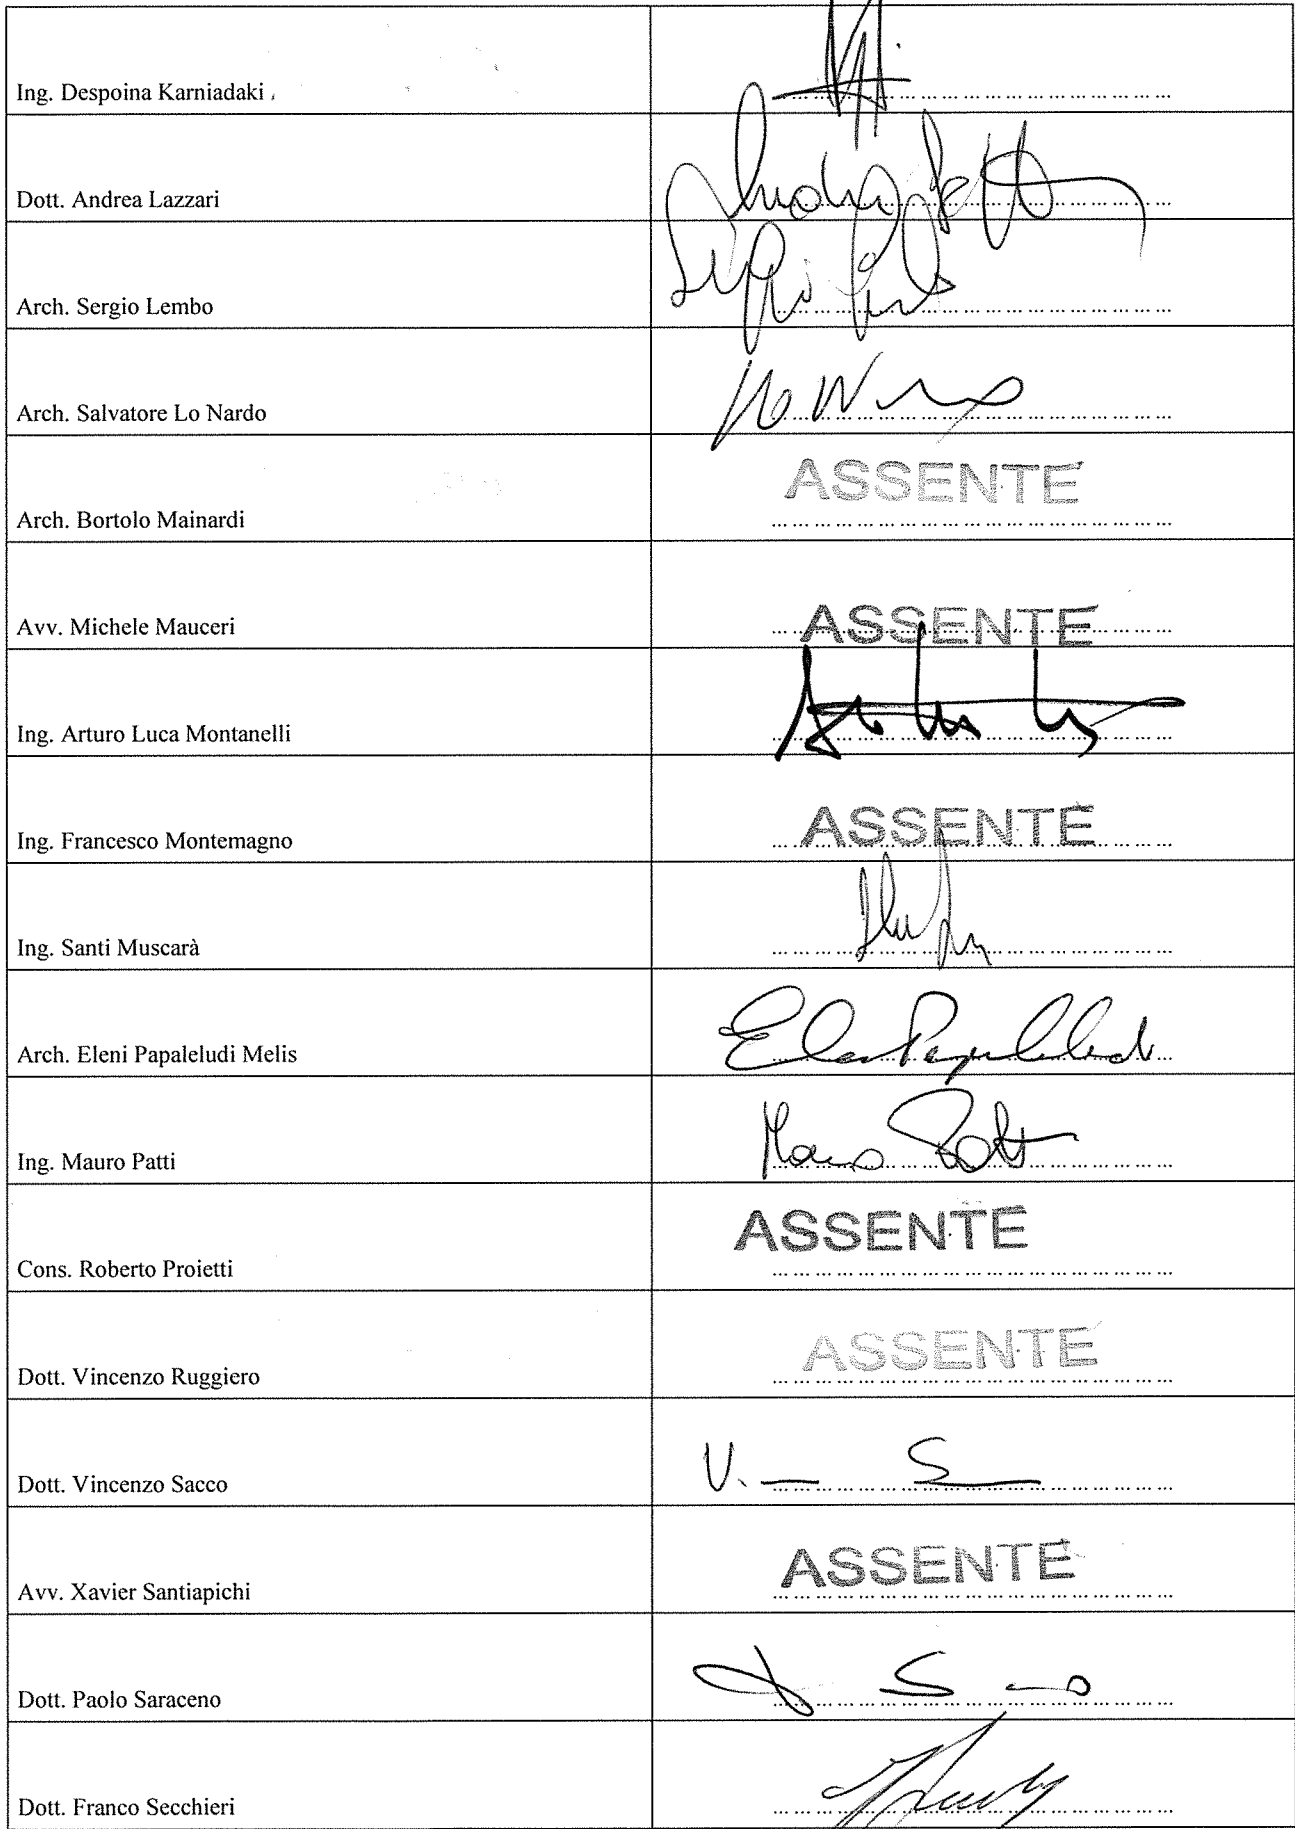 Ing. Despoina Karniadaki
Dott. Andrea Lazzari
Arch. Sergio Lembo
Arch. Salvatore Lo Nardo
Arch. Bortolo Mainardi
ASSENTE
Avv. Michele Mauceri
ASSENTE
Ing. Arturo Luca Montanelli
Ing. Francesco Montemagno
ASSENTE
Ing. Santi Muscarà
Arch. Eleni Papaleludi Melis
Ing. Mauro Patti
Mauro Patti
Cons. Roberto Proietti
ASSENTE
Dott. Vincenzo Ruggiero
ASSENTE
Dott. Vincenzo Sacco
Avv. Xavier Santiapichi
ASSENTE
Dott. Paolo Saraceno
Dott. Franco Secchieri